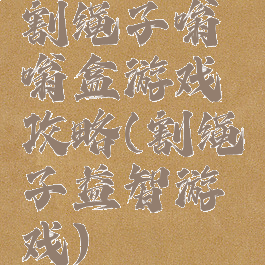 割绳子嗡
嗡盒游戏
攻略(割绳
子益智游
戏)